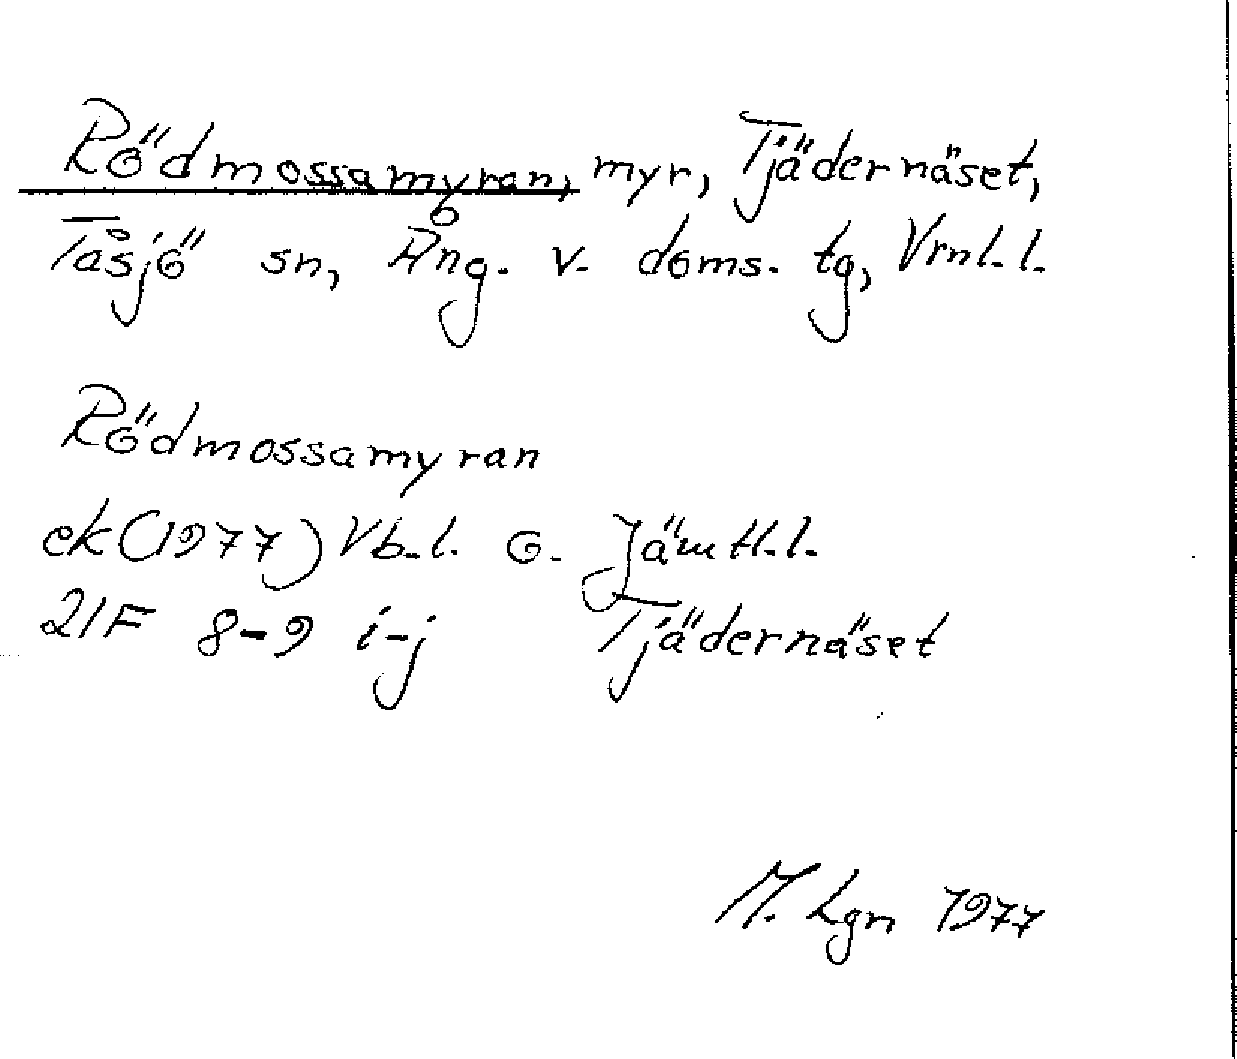 Rödmossamyran, myr, Tjädernäset,
Tåsjö sn, Ång. v. doms. tg, Vrnl. l.
Rödmossamyran
ek (1977) Vb. l. o. Jämtl. l.
21F 8-9 i-j Tjädernäset
M. Lgn 1977